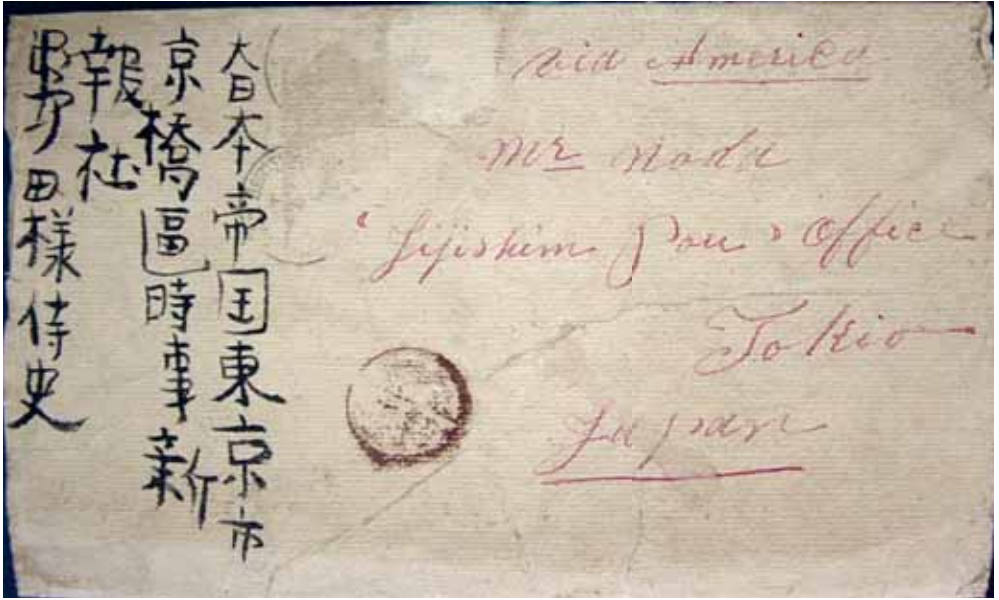 大日本帝国東京市
京橋區時事新
報社
野田様侍史
via America
Mr Noda
'Jijishim Pou' Office
Tokio
Japan